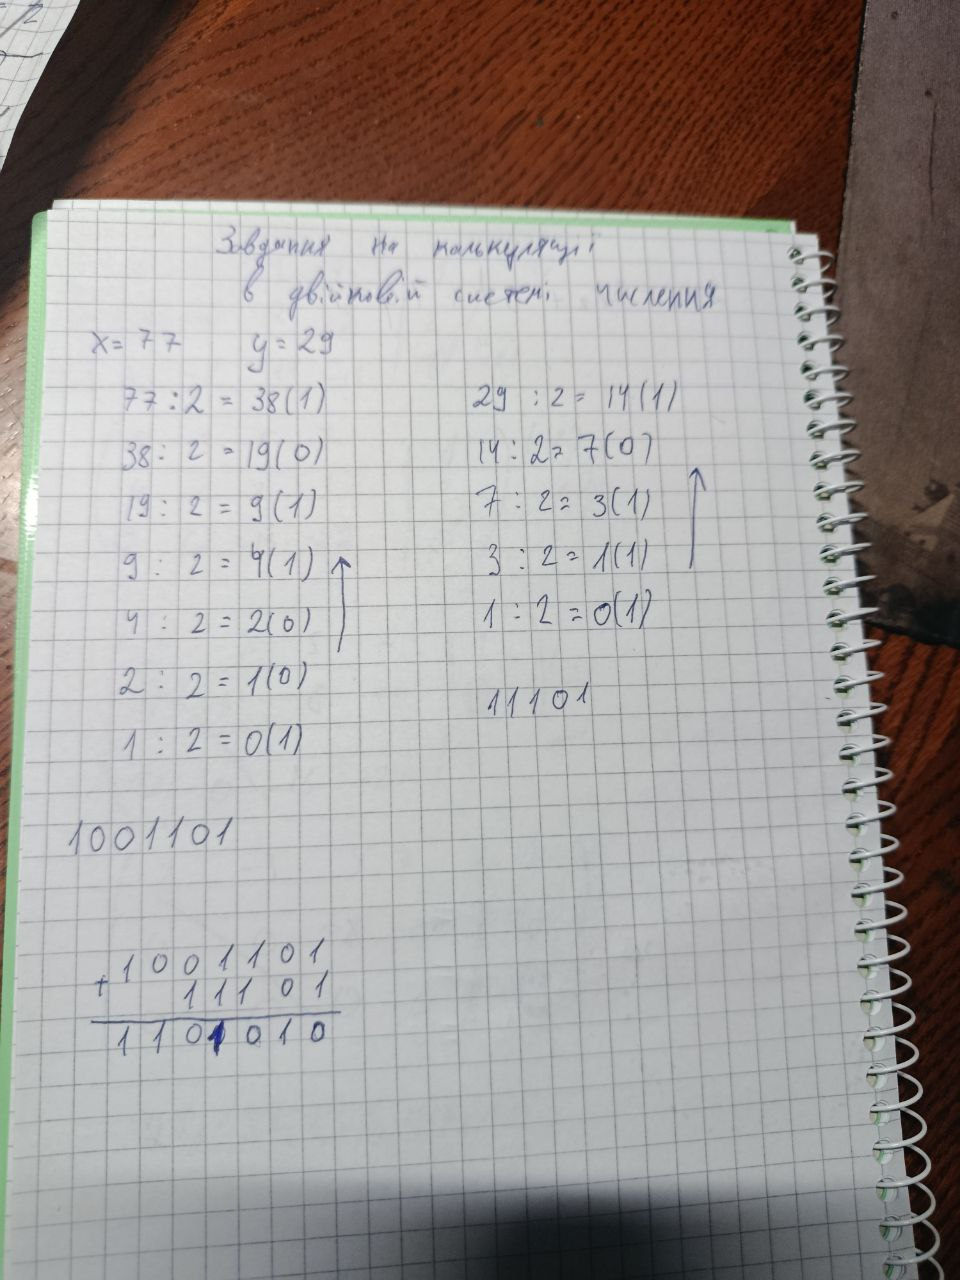 Завдання на калькуляції
в двійковій системі числення
x= 77 y= 29
77 : 2 = 38(1)
38 : 2 = 19(0)
19 : 2 = 9(1)
9 : 2 = 4(1)
4 : 2 = 2(0)
2 : 2 = 1(0)
1 : 2 = 0(1)
29 : 2 = 14(1)
14 : 2 = 7(0)
7 : 2 = 3(1)
3 : 2 = 1(1)
1 : 2 = 0(1)
11101
1001101
1001101
+ 11101
1101010